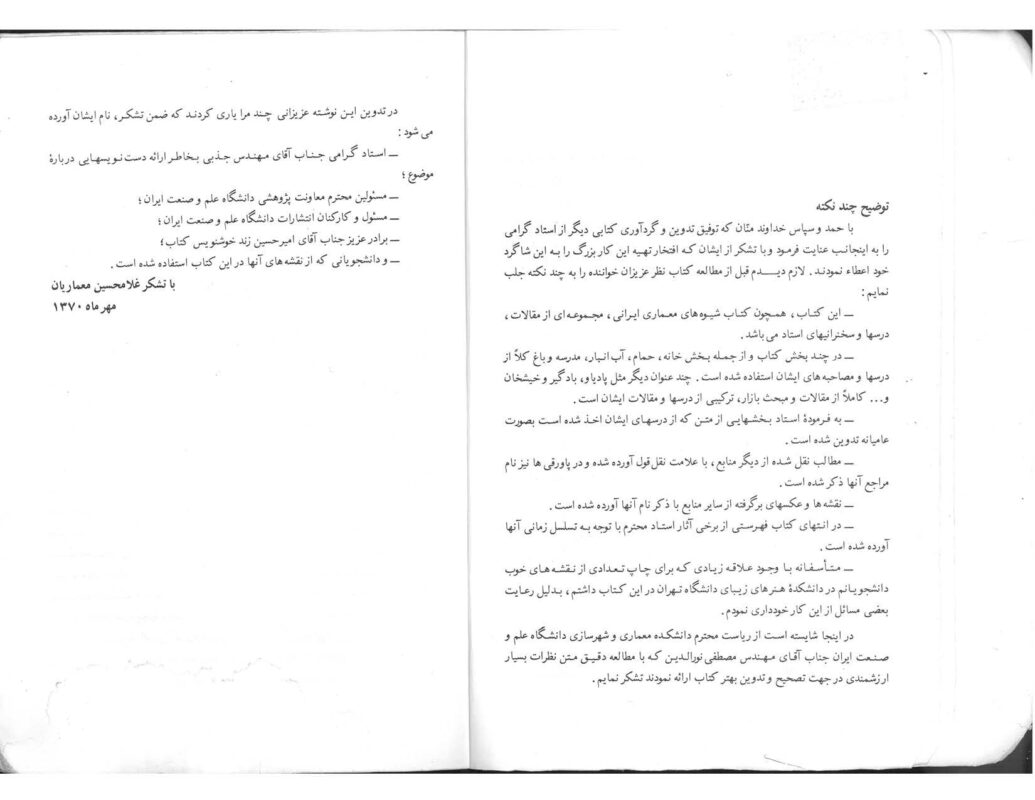 توضیح چند نکته
با حمد و سپاس خداوند منّان که توفیق تدوین و گردآوری کتابی دیگر از استاد گرامی
را به اینجانب عنایت فرمود و با تشکر از ایشان که افتخار تهیه این کار بزرگ را به این شاگرد
خود اعطاء نمودند. لازم دیدم قبل از مطالعه کتاب نظر عزیزان خواننده را به چند نکته جلب
نمایم:
ــ این کتاب، همچون کتاب شیوه‌های معماری ایرانی، مجموعه‌ای از مقالات،
درسها و سخنرانیهای استاد می‌باشد.
ــ در چند بخش کتاب و از جمله بخش خانه، حمام، آب‌انبار، مدرسه و باغ کلاً از
درسها و مصاحبه‌های ایشان استفاده شده است. چند عنوان دیگر مثل پادیاو، بادگیر و خیشخان
و... کاملاً از مقالات و مبحث بازار، ترکیبی از درسها و مقالات ایشان است.
ــ به فرمودهٔ استاد بخشهایی از متن که از درسهای ایشان اخذ شده است بصورت
عامیانه تدوین شده است.
ــ مطالب نقل شده از دیگر منابع، با علامت نقل‌قول آورده شده و در پاورقی‌ها نیز نام
مراجع آنها ذکر شده است.
ــ نقشه‌ها و عکسهای برگرفته از سایر منابع با ذکر نام آنها آورده شده است.
ــ در انتهای کتاب فهرستی از برخی آثار استاد محترم با توجه به تسلسل زمانی آنها
آورده شده است.
ــ متأسفانه با وجود علاقه زیادی که برای چاپ تعدادی از نقشه‌های خوب
دانشجویانم در دانشکدهٔ هنرهای زیبای دانشگاه تهران در این کتاب داشتم، بدلیل رعایت
بعضی مسائل از این کار خودداری نمودم.
در اینجا شایسته است از ریاست محترم دانشکده معماری و شهرسازی دانشگاه علم و
صنعت ایران جناب آقای مهندس مصطفی نورالدین که با مطالعه دقیق متن نظرات بسیار
ارزشمندی در جهت تصحیح و تدوین بهتر کتاب ارائه نمودند تشکر نمایم.
در تدوین این نوشته عزیزانی چند مرا یاری کردند که ضمن تشکر، نام ایشان آورده
می‌شود:
ــ استاد گرامی جناب آقای مهندس جذبی بخاطر ارائه دست‌نویسهایی دربارهٔ
موضوع؛
ــ مسئولین محترم معاونت پژوهشی دانشگاه علم و صنعت ایران؛
ــ مسئول و کارکنان انتشارات دانشگاه علم و صنعت ایران؛
ــ برادر عزیز جناب آقای امیرحسین زند خوشنویس کتاب؛
ــ و دانشجویانی که از نقشه‌های آنها در این کتاب استفاده شده است.
با تشکر غلامحسین معماریان
مهر ماه ۱۳۷۰